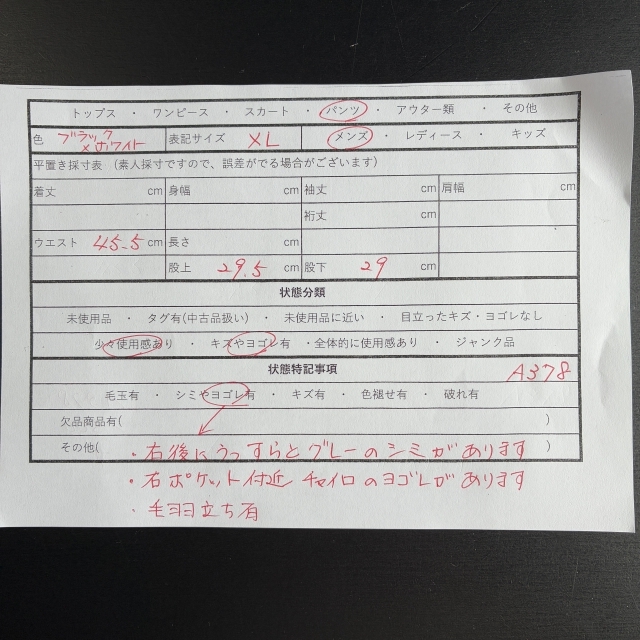 トップス ・ ワンピース ・ スカート ・ パンツ ・ アウター類 ・ その他
色 ブラック×ホワイト 表記サイズ XL メンズ ・ レディース ・ キッズ
平置き採寸表 (素人採寸ですので、誤差がでる場合がございます)
着丈 cm 身幅 cm 袖丈 cm 肩幅 cm
裄丈 cm
ウエスト 45.5 cm 長さ cm
股上 29.5 cm 股下 29 cm
状態分類
未使用品 ・ タグ有(中古品扱い) ・ 未使用品に近い ・ 目立ったキズ・ヨゴレなし
少々使用感あり ・ キズやヨゴレ有 ・全体的に使用感あり ・ ジャンク品
状態特記事項 A378
毛玉有 ・ シミやヨゴレ有 ・ キズ有 ・ 色褪せ有 ・ 破れ有
欠品商品有( )
その他( ・右後にうっすらとグレーのシミがあります )
・右ポケット付近 チャイロのヨゴレがあります
・毛羽立ち有